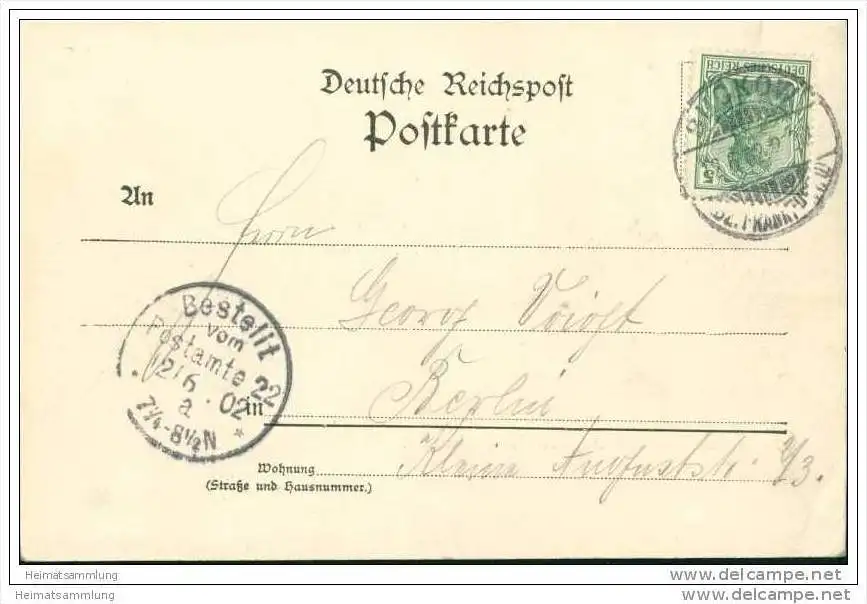 Deutsche Reichspost
Postkarte
DEUTSCHES REICH
5
BUCKOW
BZ. FRANKF
An
Herrn
Georg Voigt
Bestellt
vom
Postamte 22
12/6 02
a
7¼-8½N
in Berlin
Wohnung Kleine Auguststr.
(Straße und Hausnummer.)
Heimatsammlung
Heimatsammlung
www.delcampe.net
www.delcampe.net